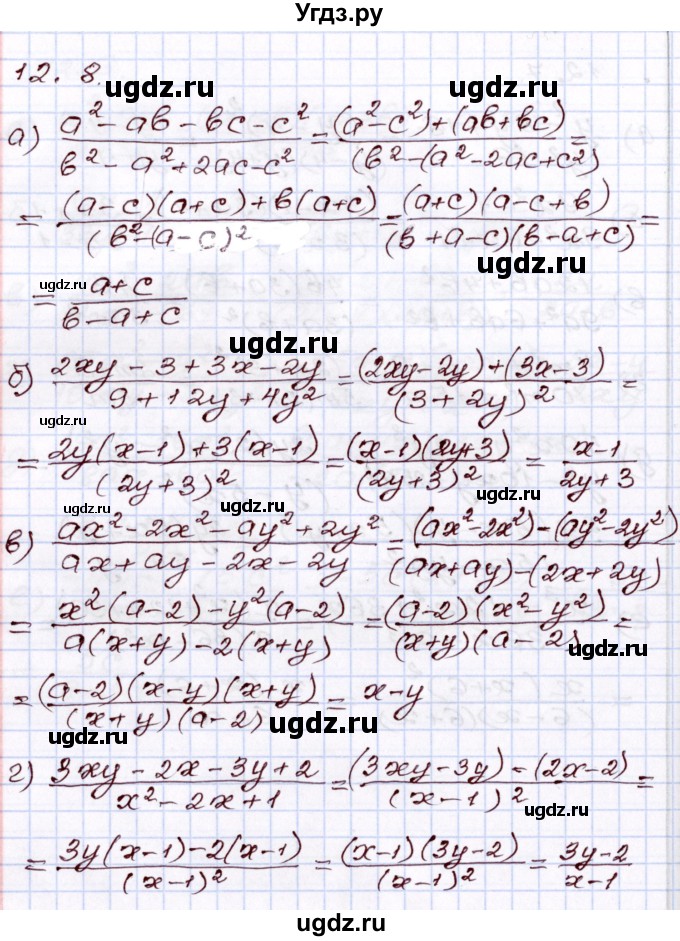 Угдз.ру
12. 8.
ugdz.ru ugdz.ru
а) (a² - ab - bc - c²)/(b² - a² + 2ac - c²) = ((a² - c²) + (ab + bc))/(b² - (a² - 2ac + c²)) =
= ((a - c)(a + c) + b(a + c))/(b² - (a - c)²) = ((a + c)(a - c + b))/((b + a - c)(b - a + c)) =
ugdz.ru ugdz.ru
= (a + c)/(b - a + c)
ugdz.ru
б) (2xy - 3 + 3x - 2y)/(9 + 12y + 4y²) = ((2xy - 2y) + (3x - 3))/(3 + 2y)² =
ugdz.ru
= (2y(x - 1) + 3(x - 1))/(2y + 3)² = ((x - 1)(2y + 3))/(2y + 3)² = (x - 1)/(2y + 3)
ugdz.ru ugdz.ru ugdz.ru
в) (ax² - 2x² - ay² + 2y²)/(ax + ay - 2x - 2y) = ((ax² - 2x²) - (ay² - 2y²))/((ax + ay) - (2x + 2y))
ugdz.ru
= (x²(a - 2) - y²(a - 2))/(a(x + y) - 2(x + y)) = ((a - 2)(x² - y²))/((x + y)(a - 2)) =
ugdz.ru
= ((a - 2)(x - y)(x + y))/((x + y)(a - 2)) = x - y
ugdz.ru ugdz.ru
г) (3xy - 2x - 3y + 2)/(x² - 2x + 1) = ((3xy - 3y) - (2x - 2))/(x - 1)² =
ugdz.ru
= (3y(x - 1) - 2(x - 1))/(x - 1)² = ((x - 1)(3y - 2))/(x - 1)² = (3y - 2)/(x - 1)
ugdz.ru ugdz.ru
ugdz.ru